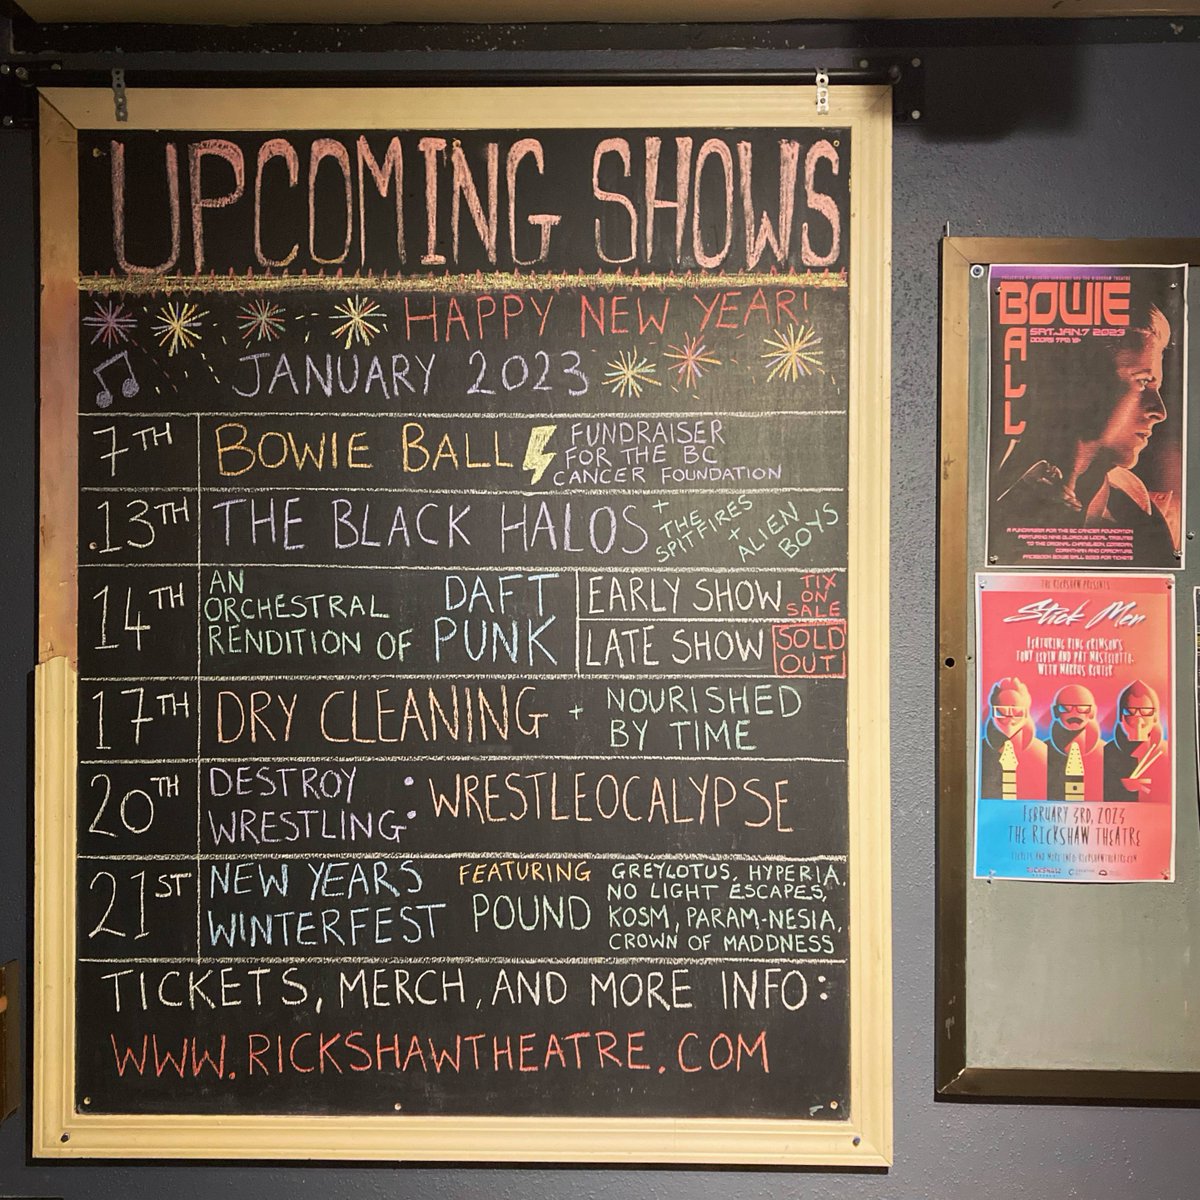 UPCOMING SHOWS
HAPPY NEW YEAR!
JANUARY 2023
7TH
BOWIE BALL
FUNDRAISER
FOR THE BC
CANCER FOUNDATION
13TH
THE BLACK HALOS
+
THE
SPITFIRES
+
ALIEN
BOYS
14TH
AN
ORCHESTRAL
RENDITION OF
DAFT
PUNK
EARLY SHOW
TIX
ON
SALE
LATE SHOW
SOLD
OUT!
17TH
DRY CLEANING
+
NOURISHED
BY TIME
20TH
DESTROY
WRESTLING:
WRESTLEOCALYPSE
21ST
NEW YEARS
WINTERFEST
FEATURING
POUND
GREYLOTUS, HYPERIA,
NO LIGHT ESCAPES,
KOSM, PARAM-NESIA,
CROWN OF MADDNESS
TICKETS, MERCH, AND MORE INFO:
WWW.RICKSHAWTHEATRE.COM
BOWIE
BALL
SAT.JAN.7 2023
A FUNDRAISER FOR THE BC CANCER FOUNDATION
FEATURING NINE GLORIOUS LOCAL TRIBUTES
TO THE ORIGINAL CHAMELEON, COMEDIAN,
CORINTHIAN AND CARICATURE
FACEBOOK BOWIE BALL 2023 FOR TICKETS
THE RICKSHAW PRESENTS
Stick Men
FEATURING KING CRIMSON'S
TONY LEVIN AND PAT MASTELOTTO
WITH MARKUS REUTER
FEBRUARY 3RD, 2023
THE RICKSHAW THEATRE
TICKETS AND MORE INFO: RICKSHAWTHEATRE.COM
RICKSHAW